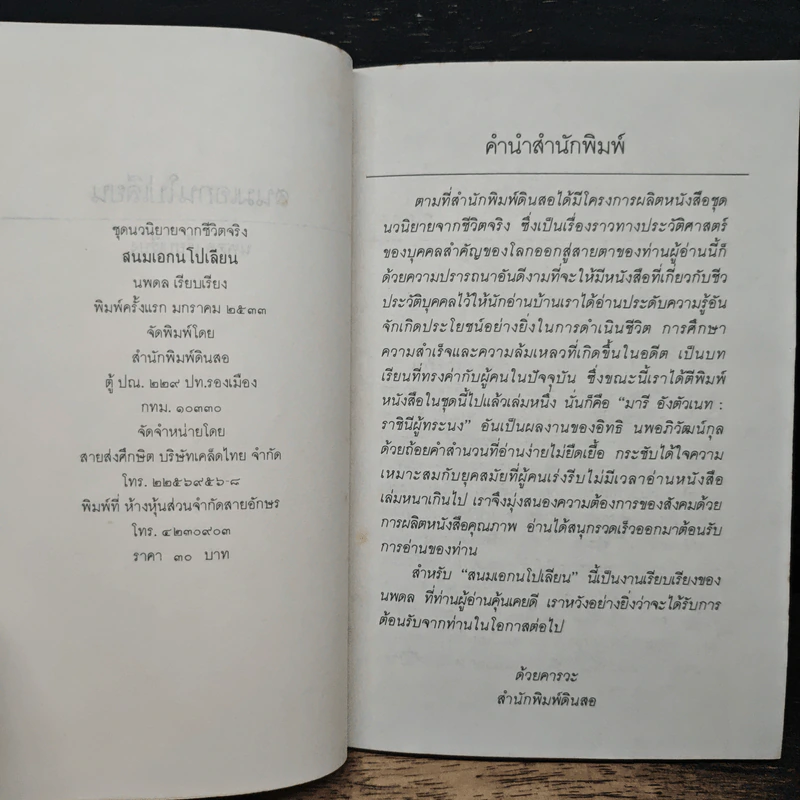 ชุดนวนิยายจากชีวิตจริง
สนมเอกนโปเลียน
นพดล เรียบเรียง
พิมพ์ครั้งแรก มกราคม ๒๕๓๓
จัดพิมพ์โดย
สำนักพิมพ์ดินสอ
ตู้ ปณ. ๒๒๙ ปท.รองเมือง
กทม. ๑๐๓๓๐
จัดจำหน่ายโดย
สายส่งศึกษิต บริษัทเคล็ดไทย จำกัด
โทร. ๒๒๕๖๙๕๖-๘
พิมพ์ที่ ห้างหุ้นส่วนจำกัดสายอักษร
โทร. ๔๒๓๐๙๐๓
ราคา ๓๐ บาท
คำนำสำนักพิมพ์
ตามที่สำนักพิมพ์ดินสอได้มีโครงการผลิตหนังสือชุด
นวนิยายจากชีวิตจริง ซึ่งเป็นเรื่องราวทางประวัติศาสตร์
ของบุคคลสำคัญของโลกออกสู่สายตาของท่านผู้อ่านนี้ก็
ด้วยความปรารถนาอันดีงามที่จะให้มีหนังสือที่เกี่ยวกับชีว
ประวัติบุคคลไว้ให้นักอ่านบ้านเราได้อ่านประดับความรู้อัน
จักเกิดประโยชน์อย่างยิ่งในการดำเนินชีวิต การศึกษา
ความสำเร็จและความล้มเหลวที่เกิดขึ้นในอดีต เป็นบท
เรียนที่ทรงค่ากับผู้คนในปัจจุบัน ซึ่งขณะนี้เราได้ตีพิมพ์
หนังสือในชุดนี้ไปแล้วเล่มหนึ่ง นั่นก็คือ “มารี อังตัวเนท :
ราชินีผู้ทระนง” อันเป็นผลงานของอิทธิ นพอภิวัฒน์กุล
ด้วยถ้อยคำสำนวนที่อ่านง่ายไม่ยืดเยื้อ กระชับได้ใจความ
เหมาะสมกับยุคสมัยที่ผู้คนเร่งรีบไม่มีเวลาอ่านหนังสือ
เล่มหนาเกินไป เราจึงมุ่งสนองความต้องการของสังคมด้วย
การผลิตหนังสือคุณภาพ อ่านได้สนุกรวดเร็วออกมาต้อนรับ
การอ่านของท่าน
สำหรับ “สนมเอกนโปเลียน” นี้เป็นงานเรียบเรียงของ
นพดล ที่ท่านผู้อ่านคุ้นเคยดี เราหวังอย่างยิ่งว่าจะได้รับการ
ต้อนรับจากท่านในโอกาสต่อไป
ด้วยคารวะ
สำนักพิมพ์ดินสอ